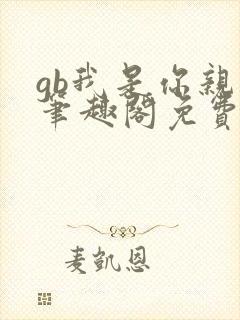 gb我是你親
筆趣閣免費
麦凱恩